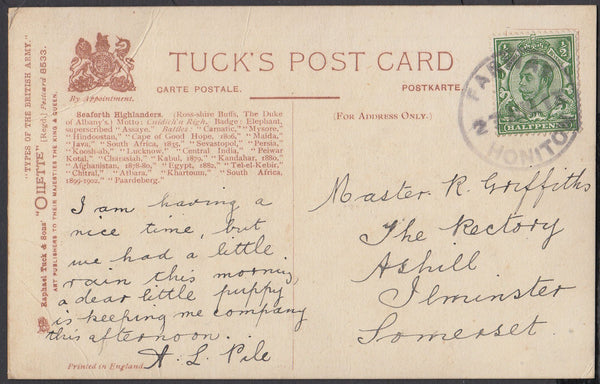 TUCK'S POST CARD
CARTE POSTALE.
POSTKARTE.
By Appointment.
(FOR ADDRESS ONLY.)
Seaforth Highlanders. (Ross-shire Buffs, The Duke
of Albany's.) Motto: Cuidich'n Righ. Badge: Elephant,
superscribed "Assaye." Battles: "Carnatic," "Mysore,"
"Hindoostan," "Cape of Good Hope, 1806," "Maida,"
"Java," "South Africa, 1835," "Sevastopol," "Persia,"
"Koosh-ab," "Lucknow," "Central India," "Peiwar
Kotal," "Charasiah," "Kabul, 1879," "Kandahar, 1880,"
"Afghanistan, 1878-80," "Egypt, 1882," "Tel-el-Kebir,"
"Chitral," "Atbara," "Khartoum," "South Africa,
1899-1902," "Paardeberg."
I am having a
nice time, but
we had a little
rain this morning
a dear little puppy
is keeping me company
this afternoon.
A. L. Pile
Printed in England.
"TYPES OF THE BRITISH ARMY."
Raphael Tuck & Sons' "OILETTE" [Regd.] Postcard 8533.
ART PUBLISHERS TO THEIR MAJESTIES THE KING & QUEEN.
HALFPENNY
HONITON
Master R. Griffiths
The Rectory
Ashill
Ilminster
Somerset.